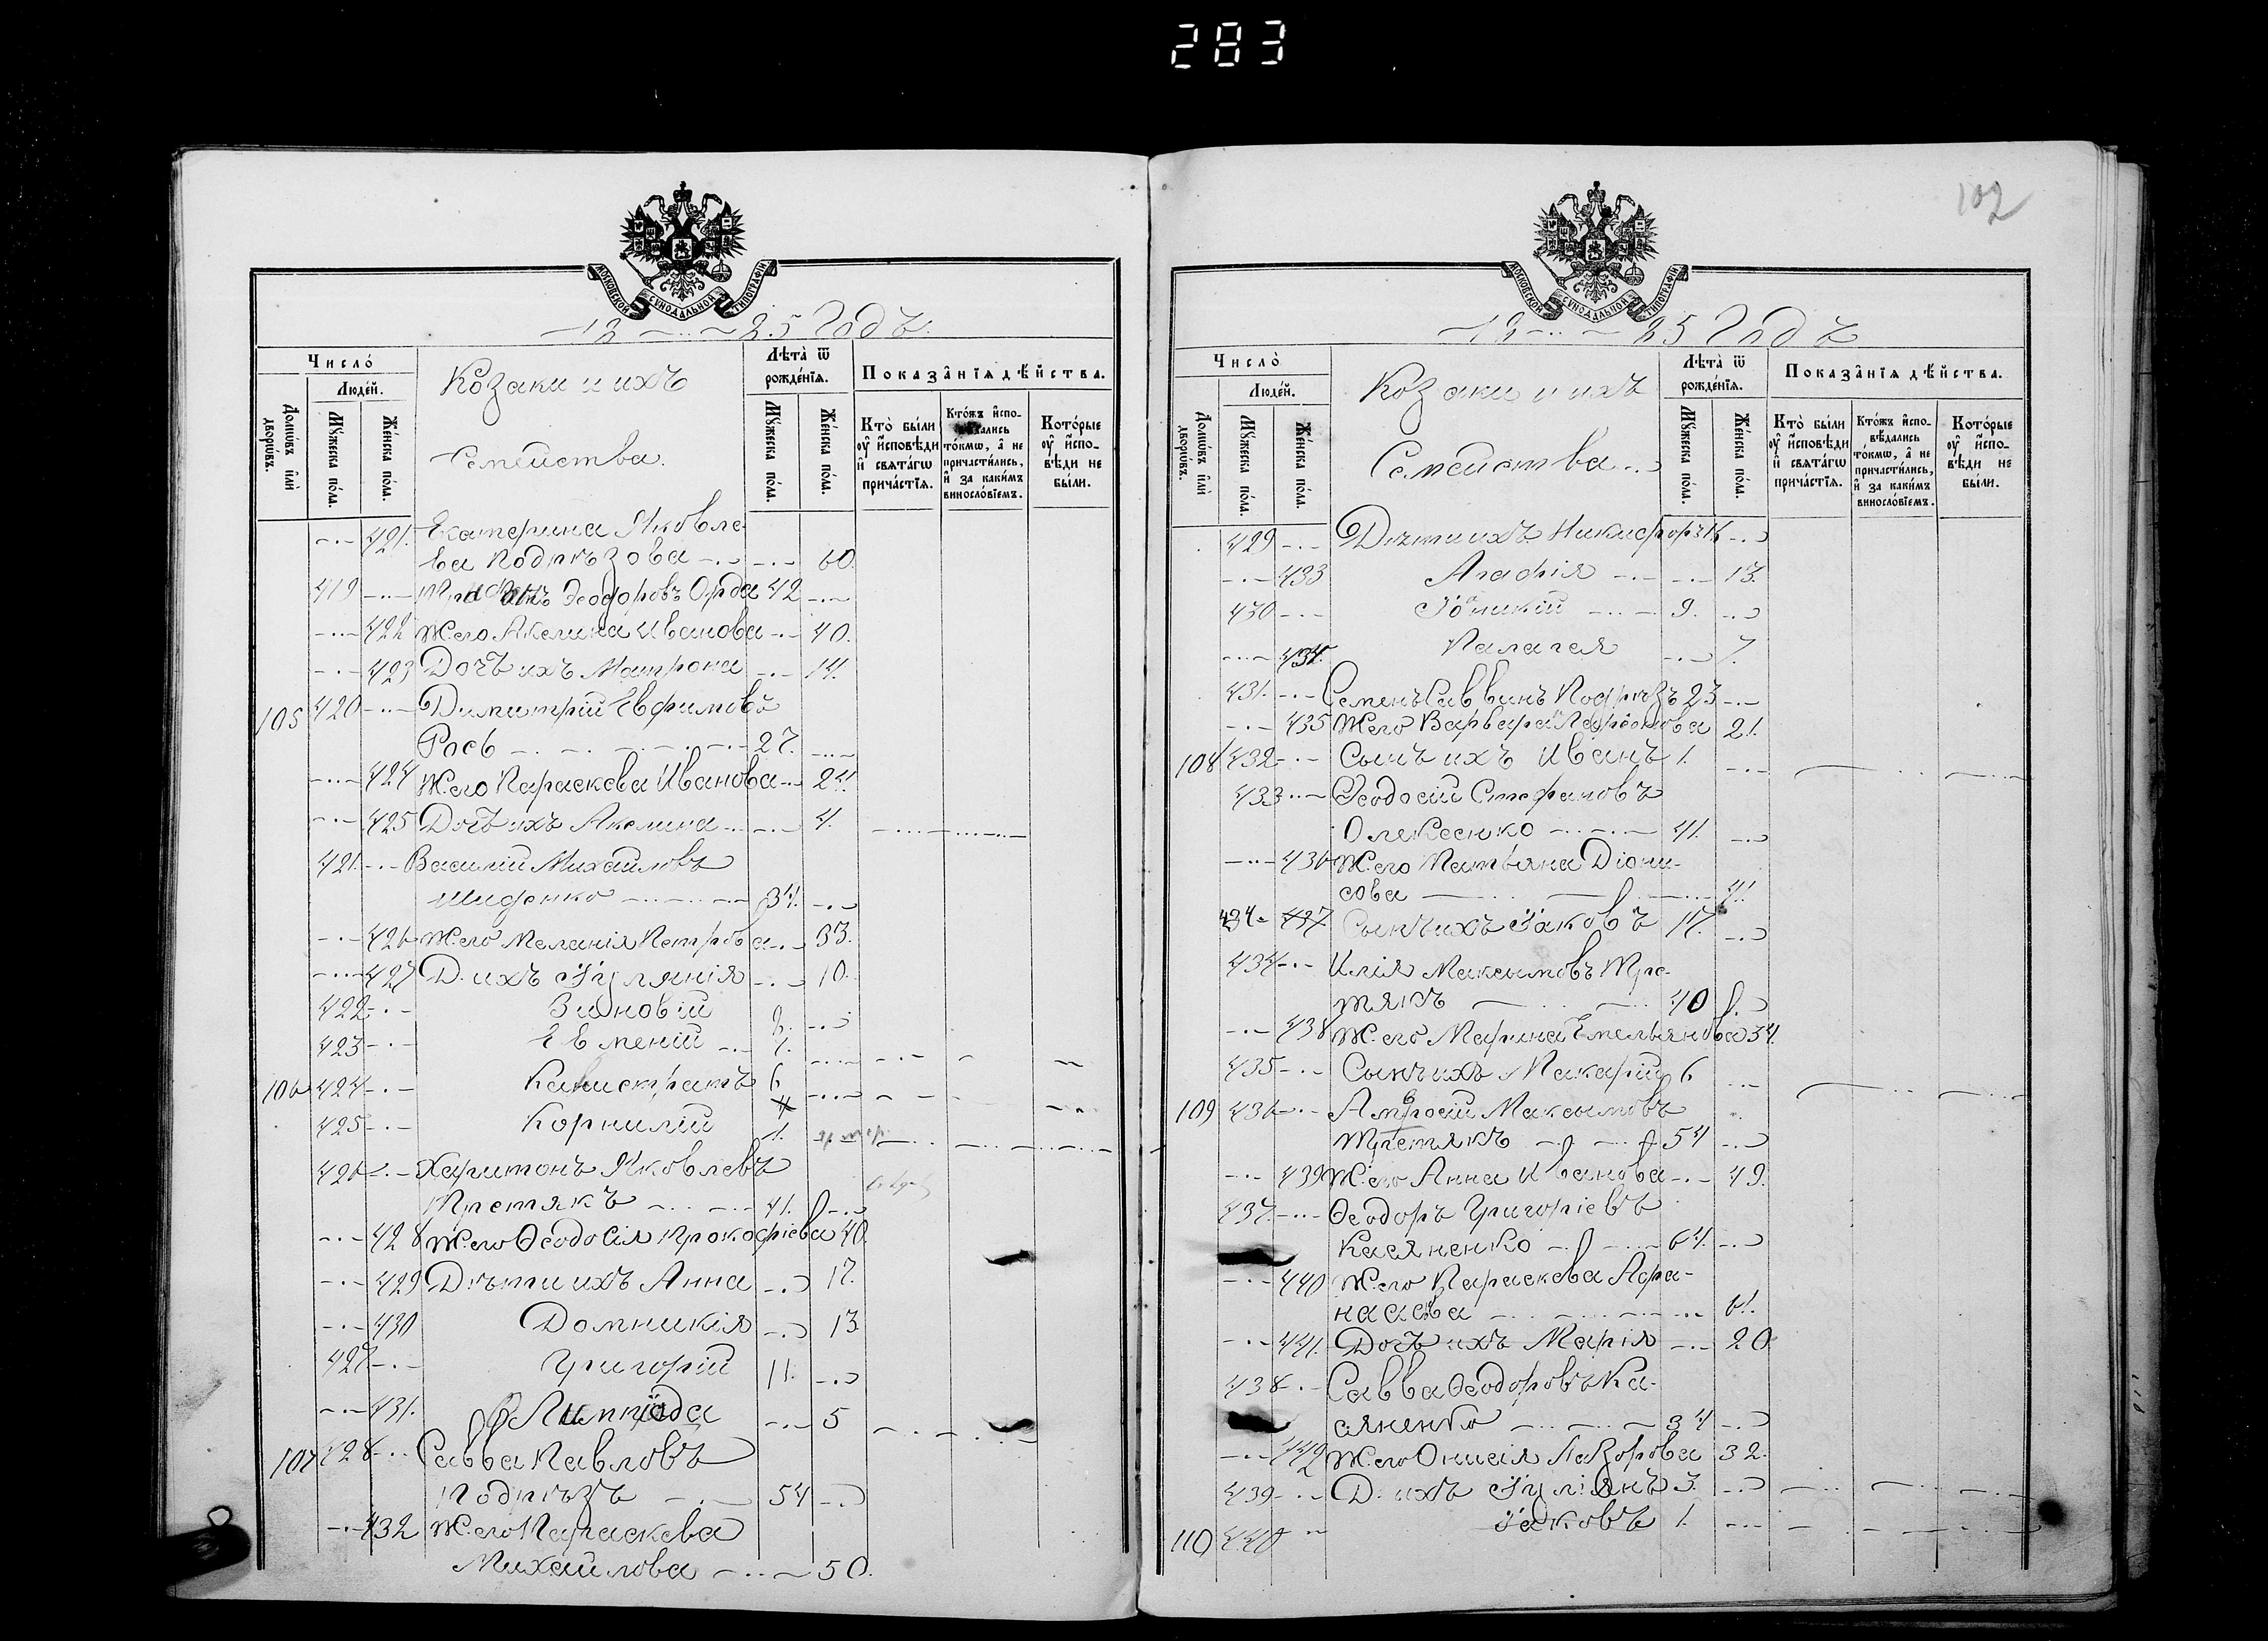 283
102
МОСКОВСКОЙ СѴНОДАЛЬНОЙ ТИПОГРАФІИ
Годъ.
Число̀
Людей.
Домѡвъ и҆лѝ дворѡвъ.
Мꙋ́жеска по́ла.
Же́нска по́ла.
Козаки и ихъ
Семейства.
Лѣта̀ ѿ рожде́нїѧ.
Мꙋ́жеска по́ла.
Же́нска по́ла.
Показа̑нїѧ дѣ́йства.
Кто̀ бы́ли оу҆ и҆сповѣди и҆ свѧта́гѡ прича́стїѧ.
Кто́жъ и҆спо- токмѡ, а҆ не причасти́лись, и҆ за каки́мъ винослóвїемъ.
Кото́рые оу҆ и҆спо- вѣди не бы́ли.
-·- 421. Екатерина Яковле-
ва Подрѣзова -·- 60.
419 -··- Ѳеодоровъ Орда 42 -·-
-··- 422 Ж. его Акелина Иванова -·- 40.
-·- 423 Дочь ихъ Матрона -·- 14.
105 420 -··- Димитрій Евфимовъ
Рось -·- 27. -·-
-··- 424 Ж. его Параскева Иванова -·- 24.
-·- 425 Дочь ихъ Акелина -·- 4.
421. -·- Василій Михайловъ
34. -·-
-·- 426 Ж. его Меланія Петрова -·- 33.
-··- 427 Д. ихъ Іуліянія -·- 10.
422 -·- Зиновій -·-
423 -·- Евменій 7. -·-
106 424 -·- Каллистратъ 6 -·-
425 -·- Корнилій 1.
426 -·- Харитонъ Яковлевъ
Третякъ 41. -·-
-·- 428 Ж. его Ѳеодосія Прокофіева 40.
-·- 429 Дѣти ихъ Анна -·- 17.
-·- 430 Домникія -·- 13
427 -·- Григорій 11. -·-
-·- 431. Олимпіяда -·- 5
107 428 -·- Савва Павловъ
Подрѣзъ 54 -·-
-·- 432 Ж. его Параскева
Михайлова -··- 50.
МОСКОВСКОЙ СѴНОДАЛЬНОЙ ТИПОГРАФІИ
Годъ
Число̀
Людей.
Домѡвъ и҆лѝ дворѡвъ.
Мꙋ́жеска по́ла.
Же́нска по́ла.
Козаки и ихъ
Семейства
Лѣта̀ ѿ рожде́нїѧ.
Мꙋ́жеска по́ла.
Же́нска по́ла.
Показа̑нїѧ дѣ́йства.
Кто̀ бы́ли оу҆ и҆сповѣди и҆ свѧта́гѡ прича́стїѧ.
Кто́жъ и҆спо- вѣдались токмѡ, а҆ не причасти́лись, и҆ за каки́мъ винослóвїемъ.
Кото́рые оу҆ и҆спо- вѣди не бы́ли.
429 -·- Дѣти ихъ Никифоръ -·-
-·- 433 Агафія -·- 13.
430 -·- Іоникій 9. -·-
-··- 434. Палагея -·- 7.
431. -·- Семенъ Саввинъ Подрѣзъ 23 -·-
-·- 435 Ж. его Варвара 21.
108 432 -·- Сынъ ихъ Иванъ 1. -·-
433 -·- Ѳеодосій Стефановъ
Олексенко 41. -·-
-··- 436 Ж. его Татьяна Діони-
сова 41.
434 437. Сынъ ихъ Іаковъ 17. -·-
434 -·- Илія Максымовъ Тре-
тякъ 40 -·-
-·- 438 Ж. его Марина Емельянова 34.
435 -·- Сынъ ихъ Макарій 6 -·-
109 436 -·- Амвросій Максымовъ
Третякъ 54 -·-
-·- 439 Ж. его Анна Иванова -·- 49.
437. -··- Ѳеодоръ Григоріевъ
Касяненко 64. -·-
-·- 440 Ж. его Параскева Афа-
насіева 61.
-·- 441. Дочь ихъ Марія -·- 20
438 -·- Савва Ѳеодоровъ Ка-
сяненко 34 -·-
-·- 442 Ж. его Онисія Лазорова 32.
439 -·- Д. ихъ Іуліянъ 3. -·-
110 440 Іаковъ 1. -·-